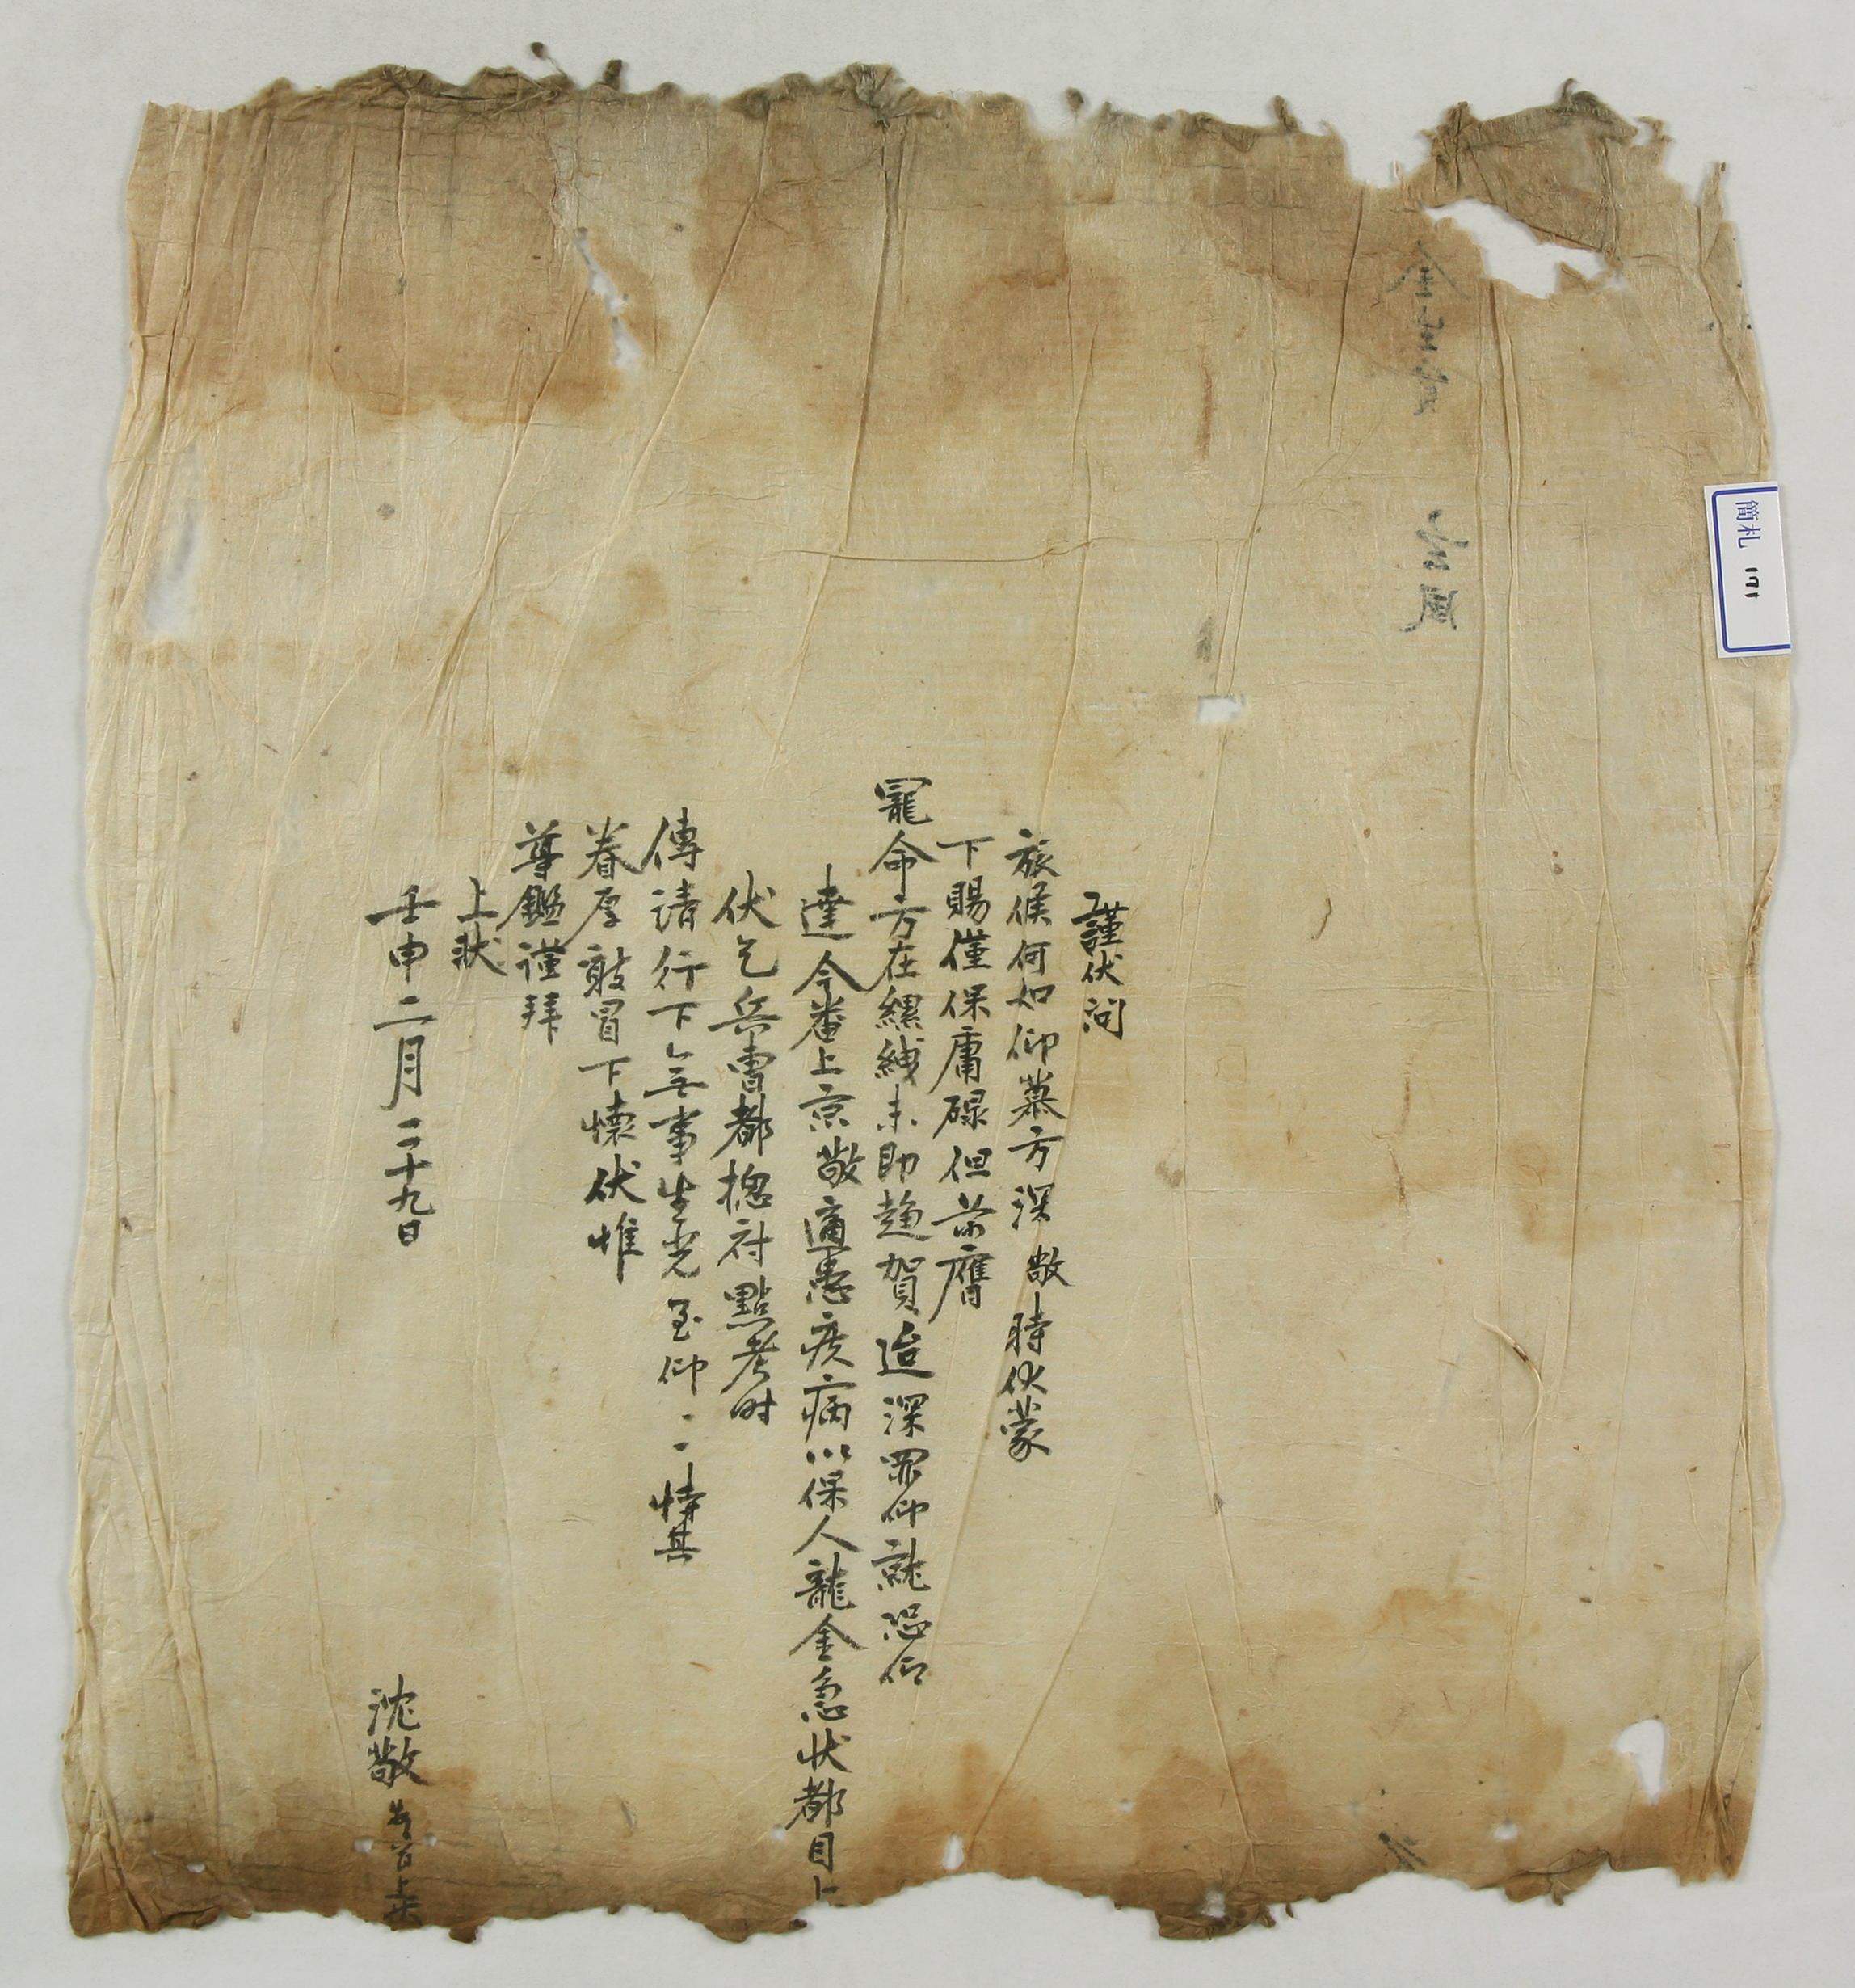 謹伏問
旅候何如仰慕方深敬時伏蒙
下賜僅保庸碌但榮膺
寵命方在縲絏未即趨賀迨深罪仰就恐仰
達今番上京敬適患疾病以保人龍金急状都目上
伏乞兵曹都摠府點考时
傳請行下無事生光至仰〻〻恃其
眷厚敢冒下懷伏惟
尊鑑謹拜
上狀
壬申二月二十九日
沈敬
簡札 171